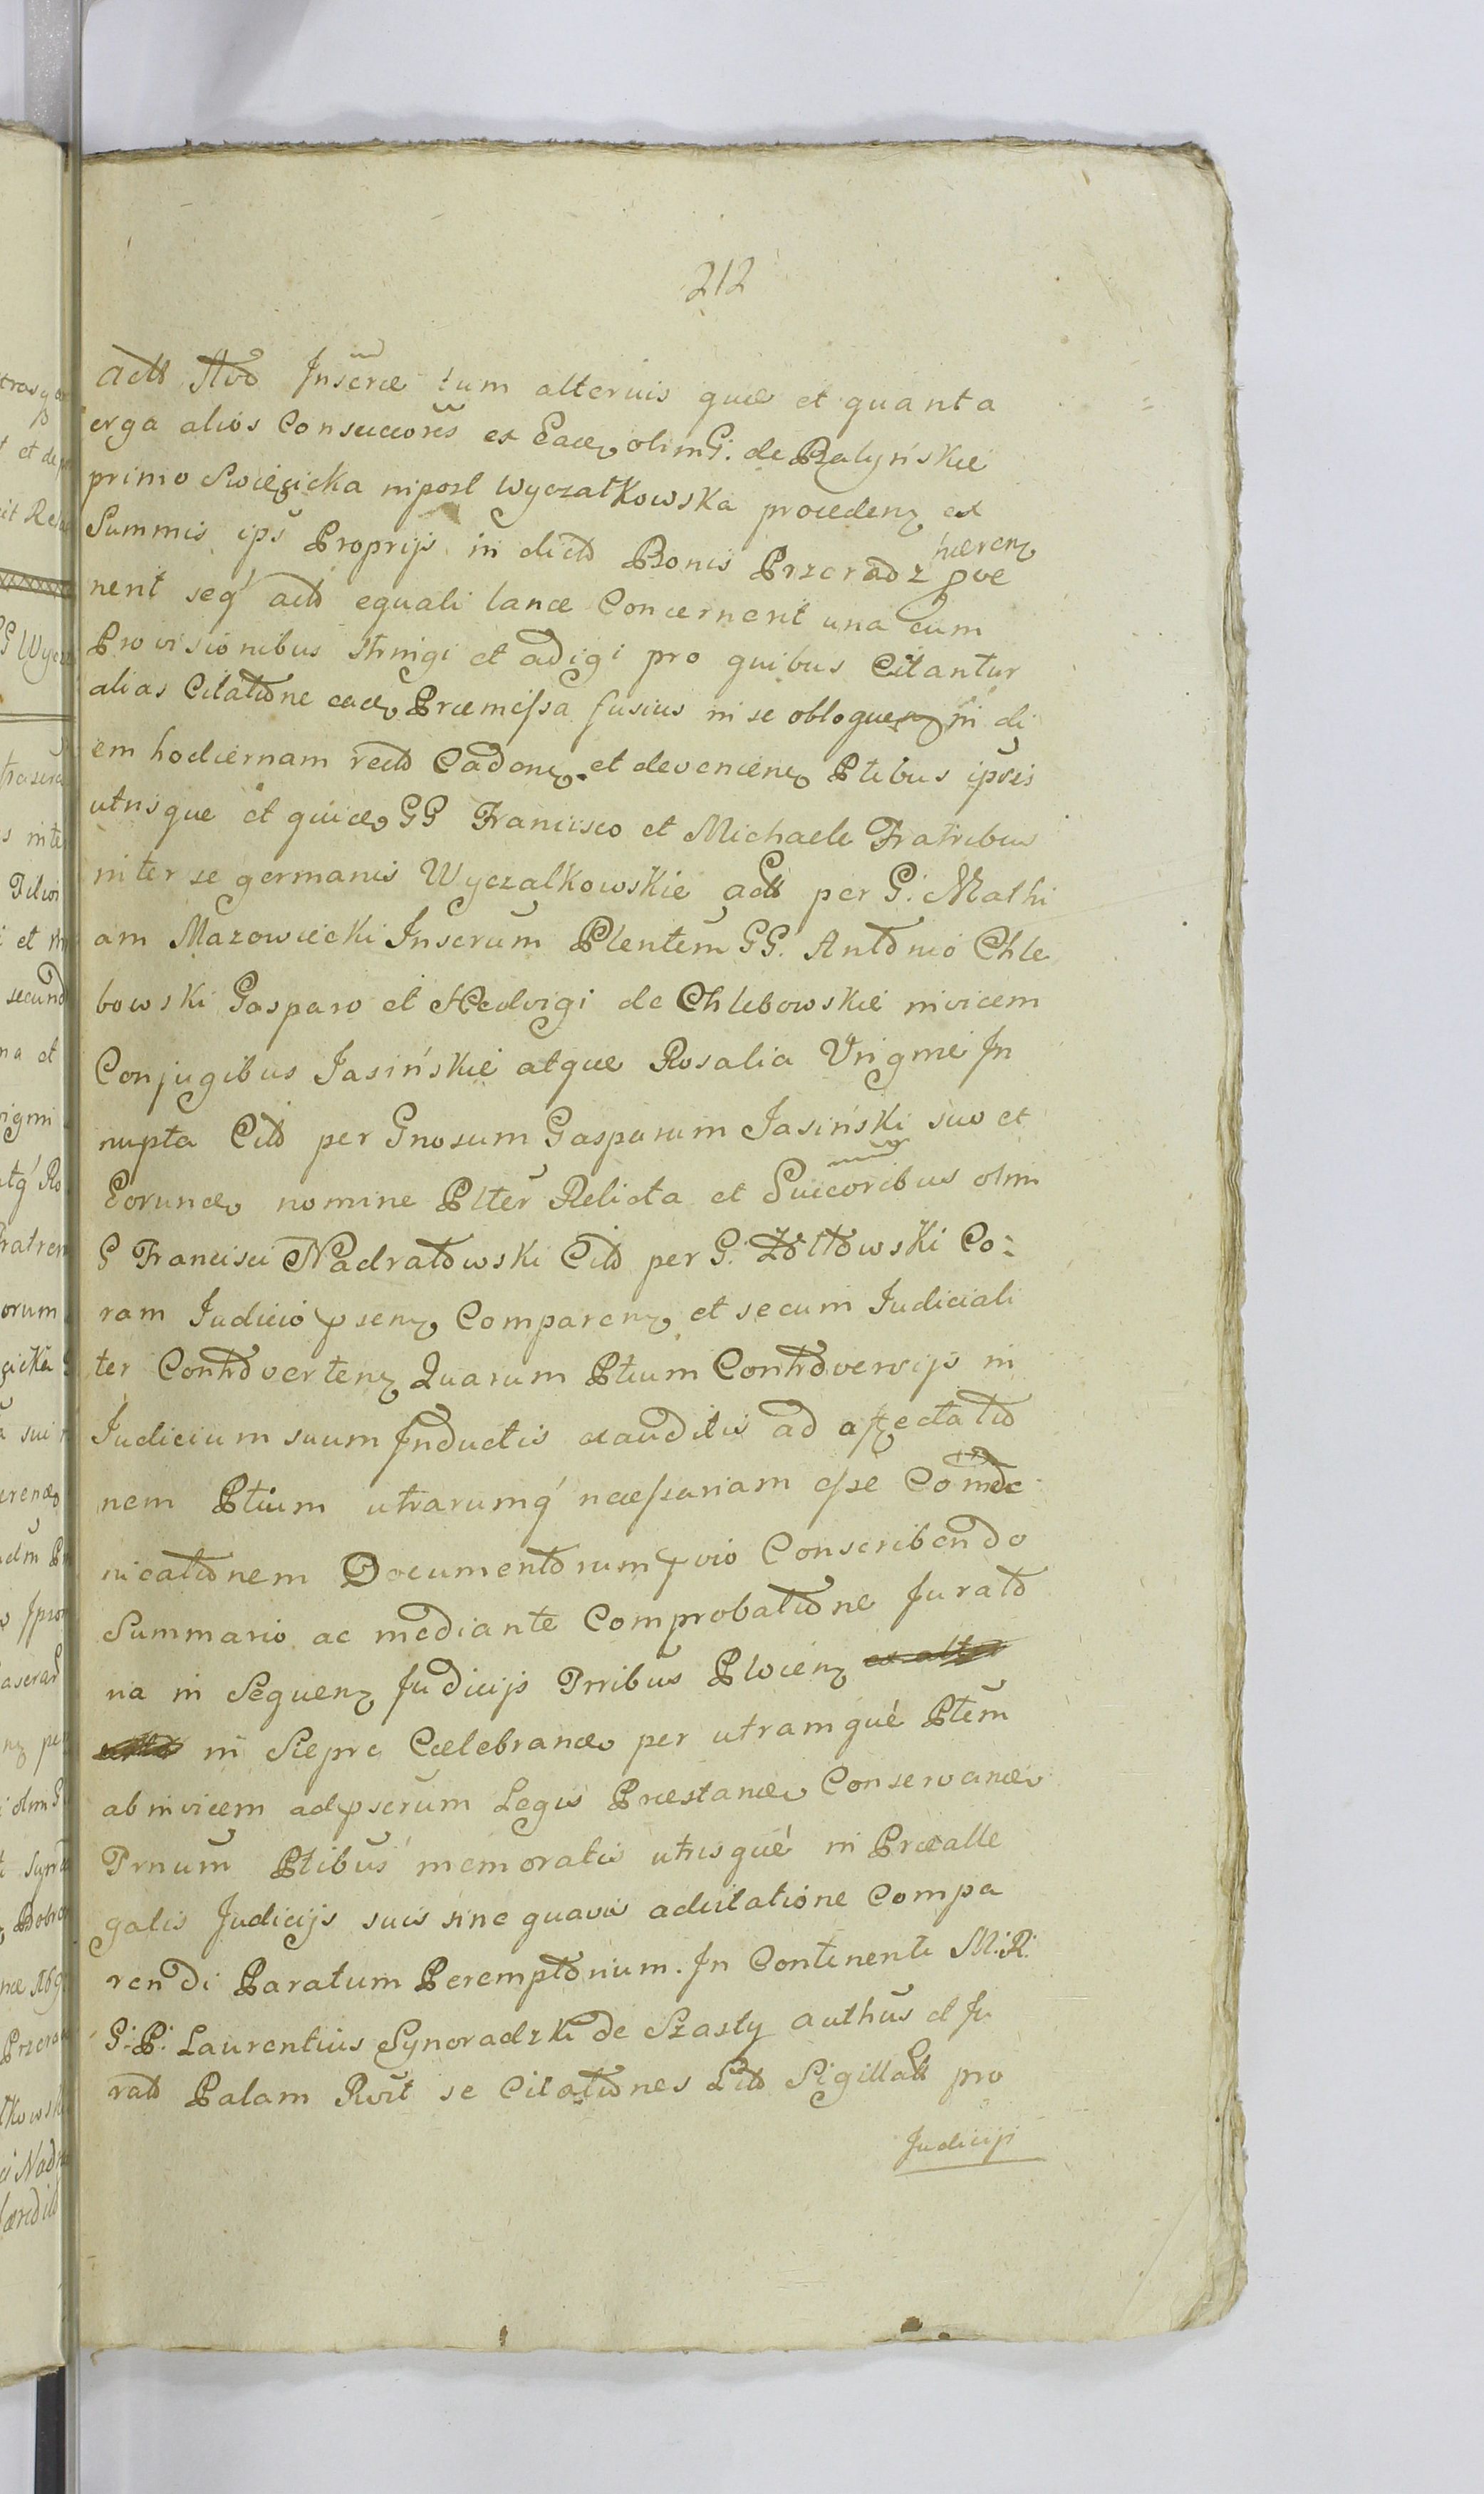 212
Actt Insere tum alterius quae et quanta
erga alios Consuccores ex Eade olim G: de Balyńskie
primo Swięcicka nipost Wyczałkowska proceden ex
Summis ips Proprijs in dictō Bonis Przeradz haeren pve
nent seq actō equali lance Concernent una cum
Provisionibus stringi et adigi pro quibus Citantur
alias Citatione eade Praemissa fusius in se obloquen in di
em hodiernam rectō Caden et devenien Ptibus ipsis
utrisque et quide GG Francisco et Michaele Fratribus
inter se germanis Wyczalkowskie actt per G: Mathi
am Mazowiecki Inserum Plentem GG. Antonio Chle
bowski Gasparo et Hedvigi de Chlebowskie invicem
Conjugibus Jasińskie atque Rosalia Virgine In
nupta Citō per Gnosum Gasparum Jasiński suo et
Eorunde nomine Plter Relicta et Succoribus olim
G Francisci Nadratowski Citō per G: Żółtowski Co:
ram Judicio psen Comparen et secum Judiciali
ter Controverten Quarum Ptium Controversijs in
Judicium suum Inductis exauditis ad affectatio
nem Ptium utrarumq necessariam esse Com
nicationem Documentorum pvio Conscribendo
Summario ac mediante Comprobatione Jurato
ria in Sequen Judicijs Trribus Plocen
in Sieprc Celebrande per utramque Ptem
ab invicem ad pscrum Legis Praestande Conservande
Trnum Ptibus memoratis utrisque in Praealle
gatis Judicijs suis sine quavis adcitatione Compa
rendi Paratum Peremptorium. In Continenti M:R:
G:P: Laurentius Synoradzki de Szasty authus et Ju
ratō Palam Rvit se Citationes Litō Sigillatt pro
Judicijs